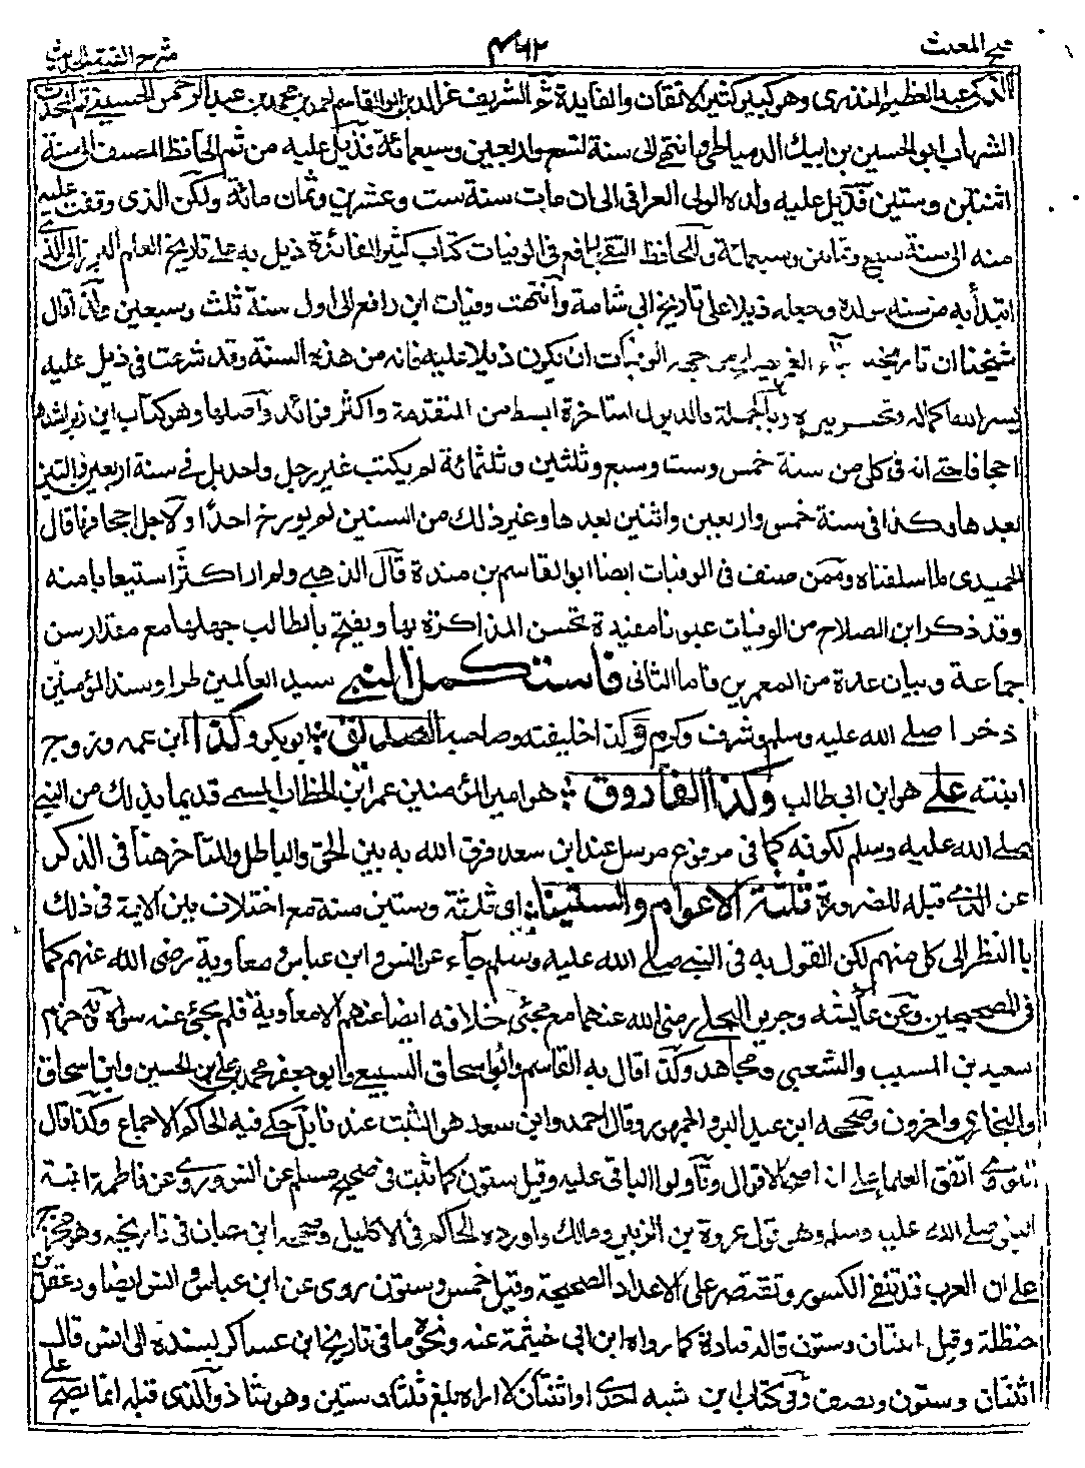 فتح المغيث ٤٦٢ شرح الفية الحديث
الذكر عبد العظيم المنذرى وهو كبير كثير الاتقان والفايدة ثم الشريف عز الدين ابو القاسم احمد بن محمد بن عبد الرحمن الحسينى ثم المحدث
الشهاب ابو الحسين بن ايبك الدمياطى وانتهى الى سنة تسع واربعين وسبعمائة فذيل عليه من ثم الحافظ المصنف الى سنة
اثنتين وستين فذيل عليه ولده الولى العراقى الى ان مات سنة ست وعشرين وثمان مائة ولكن الذى وقفت عليه
منه الى سنة سبع وثمانين وسبعمائة والحافظ التقى بن رافع فى الوفيات كتاب كثير الفائدة ذيل به على تاريخ العلم البرزالى الذى
ابتدأ به من سنة مولده وجعله ذيلا على تاريخ ابى شامة وانتهت وفيات ابن رافع الى اول سنة ثلث وسبعين ولذا قال
شيخنا ان تاريخه الوفيات ان يكون ذيلا عليه فانه من هذه السنة وقد شرعت فى ذيل عليه
يسر الله اكماله وتحريره وبالجملة فالذيول المتاخرة ابسط من المتقدمة واكثر فوائد واصلها وهو كتاب ابن زبر اشد
اجحافا حتى انه فى كل من سنة خمس وست وسبع وثلثين وثلثمائة لم يكتب غير رجل واحد بل فى سنة اربعين والتين
بعدها وكذا فى سنة خمس واربعين واثنين بعدها وغير ذلك من السنين لم يورخ احدا ولاجل اجحافها قال
الحميدى ما اسلفناه وممن صنف فى الوفيات ايضا ابو القاسم بن مندة قال الذهبى ولم ار اكثر استيعابا منه
وقد ذكر ابن الصلاح من الوفيات عيونا مفيدة تحسن المذاكرة بها ويقبح بالطالب جهلها مع مقدار سن
جماعة وبيان عدة من المعمرين فاما الثانى فاستكمل النبى سيد العالمين طرا وسند المؤمنين
ذخرا صلى الله عليه وسلم وشرف وكرم وكذا خليفته وصاحبه الصديق ابو بكر وكذا ابن عمه وزوج
ابنته على هو ابن ابى طالب وكذا الفاروق هو امير المؤمنين عمر ابن الخطاب المسمى قديما بذلك من النبى
صلى الله عليه وسلم لكونه كما فى مرفوع مرسل عند ابن سعد فرق الله به بين الحق والباطل والمتاخر هنا فى الذكر
عن الذى قبله للضرورة ثلثة الاعوام والستينا اى ثلثة وستين سنة مع اختلاف بين الايمة فى ذلك
باالنظر الى كل منهم لكن القول به فى النبى صلى الله عليه وسلم جاء عن انس وابن عباس ومعاوية رضى الله عنهم كما
فى الصحيحين وعن عايشة وجرير البجلى رضى الله عنهما مع مجئ خلافه ايضا عنهم الا معاوية فلم يجئ عنه سواه وبه جزم
سعيد بن المسيب والشعبى ومجاهد وكذا قال به القاسم وابو اسحاق السبيعى وابو جعفر محمد بن على بن الحسين وابن اسحاق
والبخارى واخرون وصححه ابن عبد البر والجمهور وقال احمد وابن سعد هو الثبت عندنا بل حكى فيه الحاكم الاجماع وكذا قال
النووى اتفق العلماء على انه اصح الاقوال وتاولوا الباقى عليه وقيل ستون كما ثبت فى صحيح مسلم عن انس وروى عن فاطمة ابنة
النبى صلى الله عليه وسلم وهو قول عروة بن الزبير ومالك واورده الحاكم فى الاكليل وصححه ابن حبان فى تاريخه وهو مخرج
على ان العرب قد تلغى الكسور وتقتصر على الاعداد الصحيحة وقيل خمس وستون روى عن ابن عباس وانس ايضا ودغفل بن
حنظلة وقيل اثنتان وستون قاله قتادة كما رواه ابن ابى خيثمة عنه ونحوه ما فى تاريخ ابن عساكر بسنده الى انس قال
اثنتان وستون ونصف وفى كتاب ابن شبه احدى او اثنتان لا اراه بلغ ثلثا وستين وهو شاذ والذى قبله انما يصح على